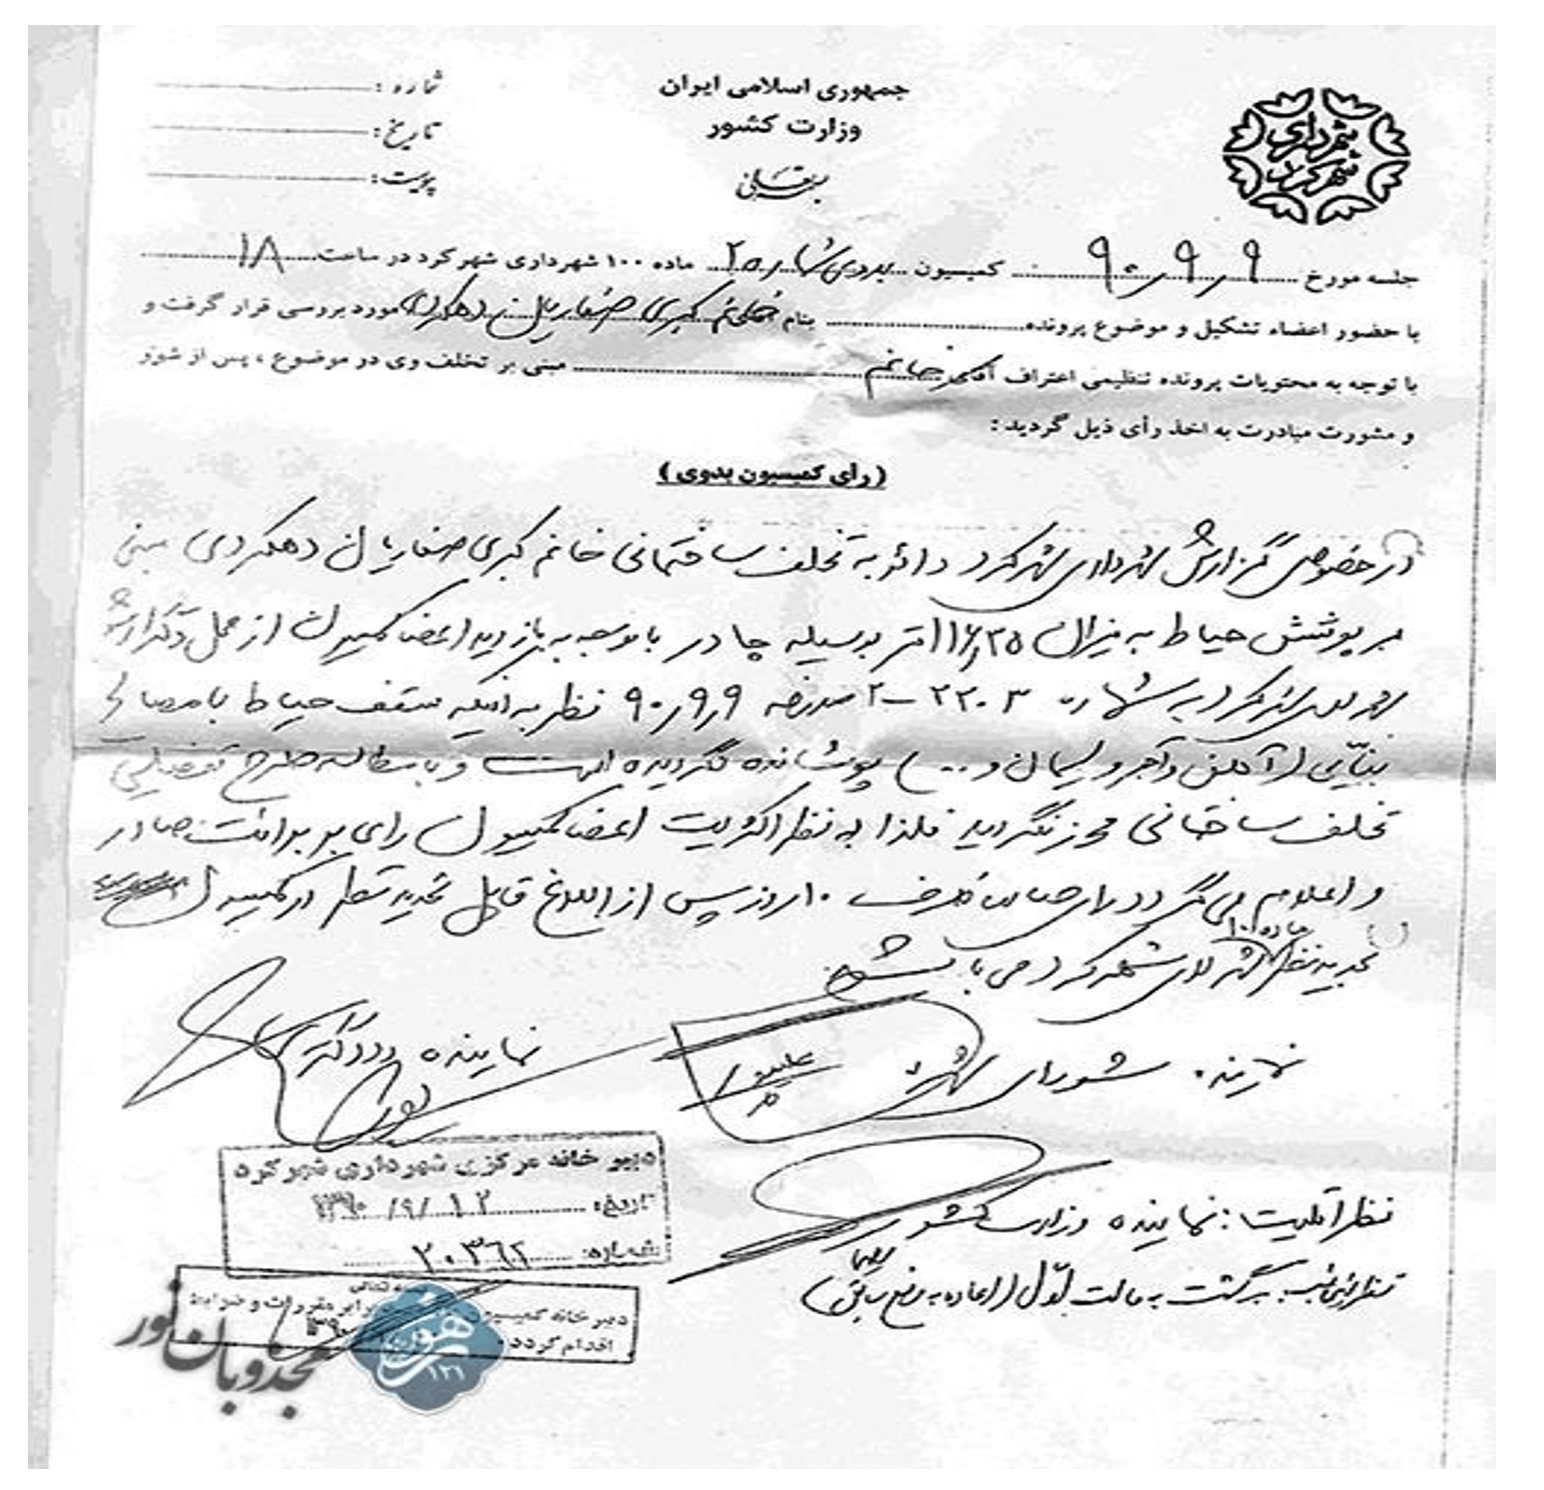 جمهوری اسلامی ایران
وزارت کشور
بسمه تعالی
شماره :
تاریخ :
پیوست :
شهرداری شهرکرد
جلسه مورخ ۹۰/۹/۹ کمیسیون بدوی شماره ۲ ماده ۱۰۰ شهرداری شهرکرد در ساعت ۱۸
با حضور اعضاء تشکیل و موضوع پرونده بنام خانم کبری صفاریان دهکردی مورد بررسی قرار گرفت و
با توجه به محتویات پرونده تنظیمی اعتراف آقای خانم مبنی بر تخلف وی در موضوع ، پس از شور
و مشورت مبادرت به اخذ رأی ذیل گردید :
( رأی کمیسیون بدوی )
در خصوص گزارش شهرداری شهرکرد دائر به تخلف ساختمانی خانم کبری صفاریان دهکردی مبنی
بر پوشش حیاط به میزان متر بوسیله چادر با توجه به بازدید اعضا کمیسیون از محل و گزارش
شهرداری شهرکرد به شماره ۲۲۰۳-۲ مورخه ۹۰/۹/۹ نظر به اینکه سقف حیاط با مصالح
بنایی (آهن و آجر و سیمان و ...) پوشانده نگردیده است و با مطالعه طرح تفضیلی
تخلف ساختمانی محرز نگردید فلذا به نظر اکثریت اعضا کمیسیون رای بر برائت صادر
و اعلام می گردد رای صادره ظرف ۱۰ روز پس از ابلاغ قابل تجدید نظر در کمیسیون
تجدید نظر ماده ۱۰۰ شهرداری شهرکرد می باشد
نماینده شورای شهر
نماینده دادگستری
دبیر خانه مرکزی شهرداری شهرکرد
تاریخ: ۱۳۹۰/۹/۱۲
شماره: ۲۰۳۶۲
نظر اقلیت : نماینده وزارت کشور
نظر برگشت به حالت اول (اعاده به وضع سابق)
دبیر خانه کمیسیون برابر مقررات و ضوابط
اقدام گردد
مجذوبان نور
هو
۱۲۱